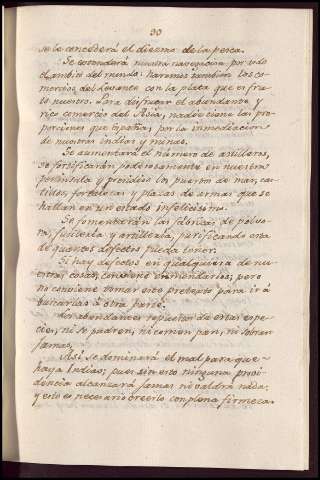 30
se le concederá el diezmo de la pesca.
Se extenderá nuestra navegacion por todo
el ambito del mundo: haremos tambien los co-
mercios del Levante con la plata que es fru-
to nuestro. Para disfrutar el abundante y
rico comercio del Asia, nadie tiene las pro-
porciones que España, por la inmediacion
de nuestras Indias y minas.
Se aumentará el número de artilleros,
se fortificarán poderosamente en nuestra
peninsula y presidios los puertos de mar, cas-
tillos, fortalezas y plazas de armas que se
hallan en un estado infelicisimo.
Se fomentarán las fábricas de polvo-
ra, fusileria y artilleria, purificando esta
de quantos defectos pueda tener.
Si hay defectos en qualquiera de nu-
estras cosas, conviene enmendarlos; pero
no conviene tomar este pretexto para ir á
buscarlas á otra parte.
Los abundantes repuestos de estas espe-
cies, ni se pudren, ni comen pan, ni sobran
jamas.
Asi se dominará el mal para que
haya Indias; pues sin esto ninguna provi-
dencia alcanzará jamas ni valdrá nada,
y esto es necesario creerlo con plena firmeza.